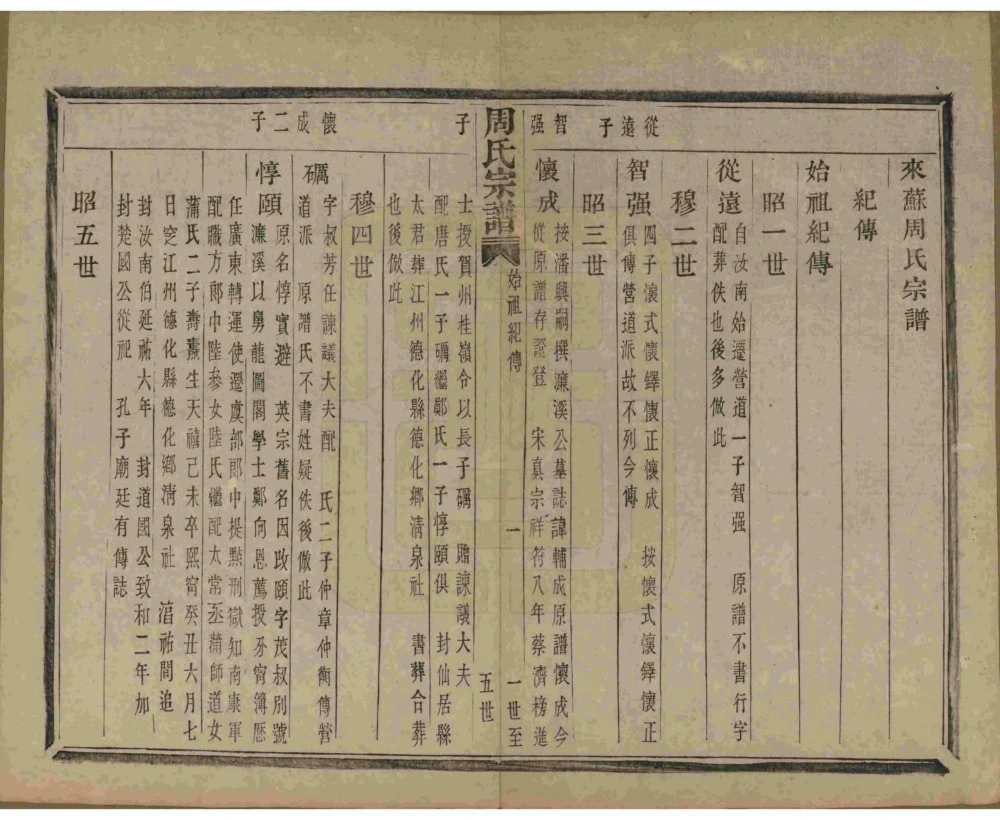 來蘇周氏宗譜
紀傳
始祖紀傳
昭一世
從遠
自汝南始遷營道一子智强　原譜不書行字
配葬佚也後多倣此
穆二世
從遠子
智强
四子懷式懷鐸懷正懷成　按懷式懷鐸懷正
俱傳營道派故不列今傳
昭三世
智强
懷成
按潘興嗣撰濂溪公墓誌諱輔成原譜懷成今
從原譜存證登　宋真宗祥符八年蔡濟榜進
周氏宗譜
始祖紀傳
一
一世至
五世
子
士授賀州桂嶺令以長子礪　贈諫議大夫
配唐氏一子礪繼鄭氏一子惇頤俱　封仙居縣
太君葬江州德化縣德化鄉清泉社　書葬合葬
也後倣此
穆四世
懷成二子
礪
字叔芳任諫議大夫配　氏二子仲章仲衡傳營
道派　原譜氏不書姓疑佚後倣此
惇頤
原名惇實避　英宗舊名因改頤字茂叔別號
濂溪以舅龍圖閣學士鄭向恩薦授分甯簿歷
任廣東轉運使遷虞部郎中提點刑獄知南康軍
配職方郎中陸參女陸氏繼配太常丞蒲師道女
蒲氏二子壽燾生天禧己未卒熙甯癸丑六月七
日窆江州德化縣德化鄉清泉社　淳祐間追
封汝南伯延祐六年　封道國公致和二年加
封楚國公從祀　孔子廟廷有傳誌
昭五世